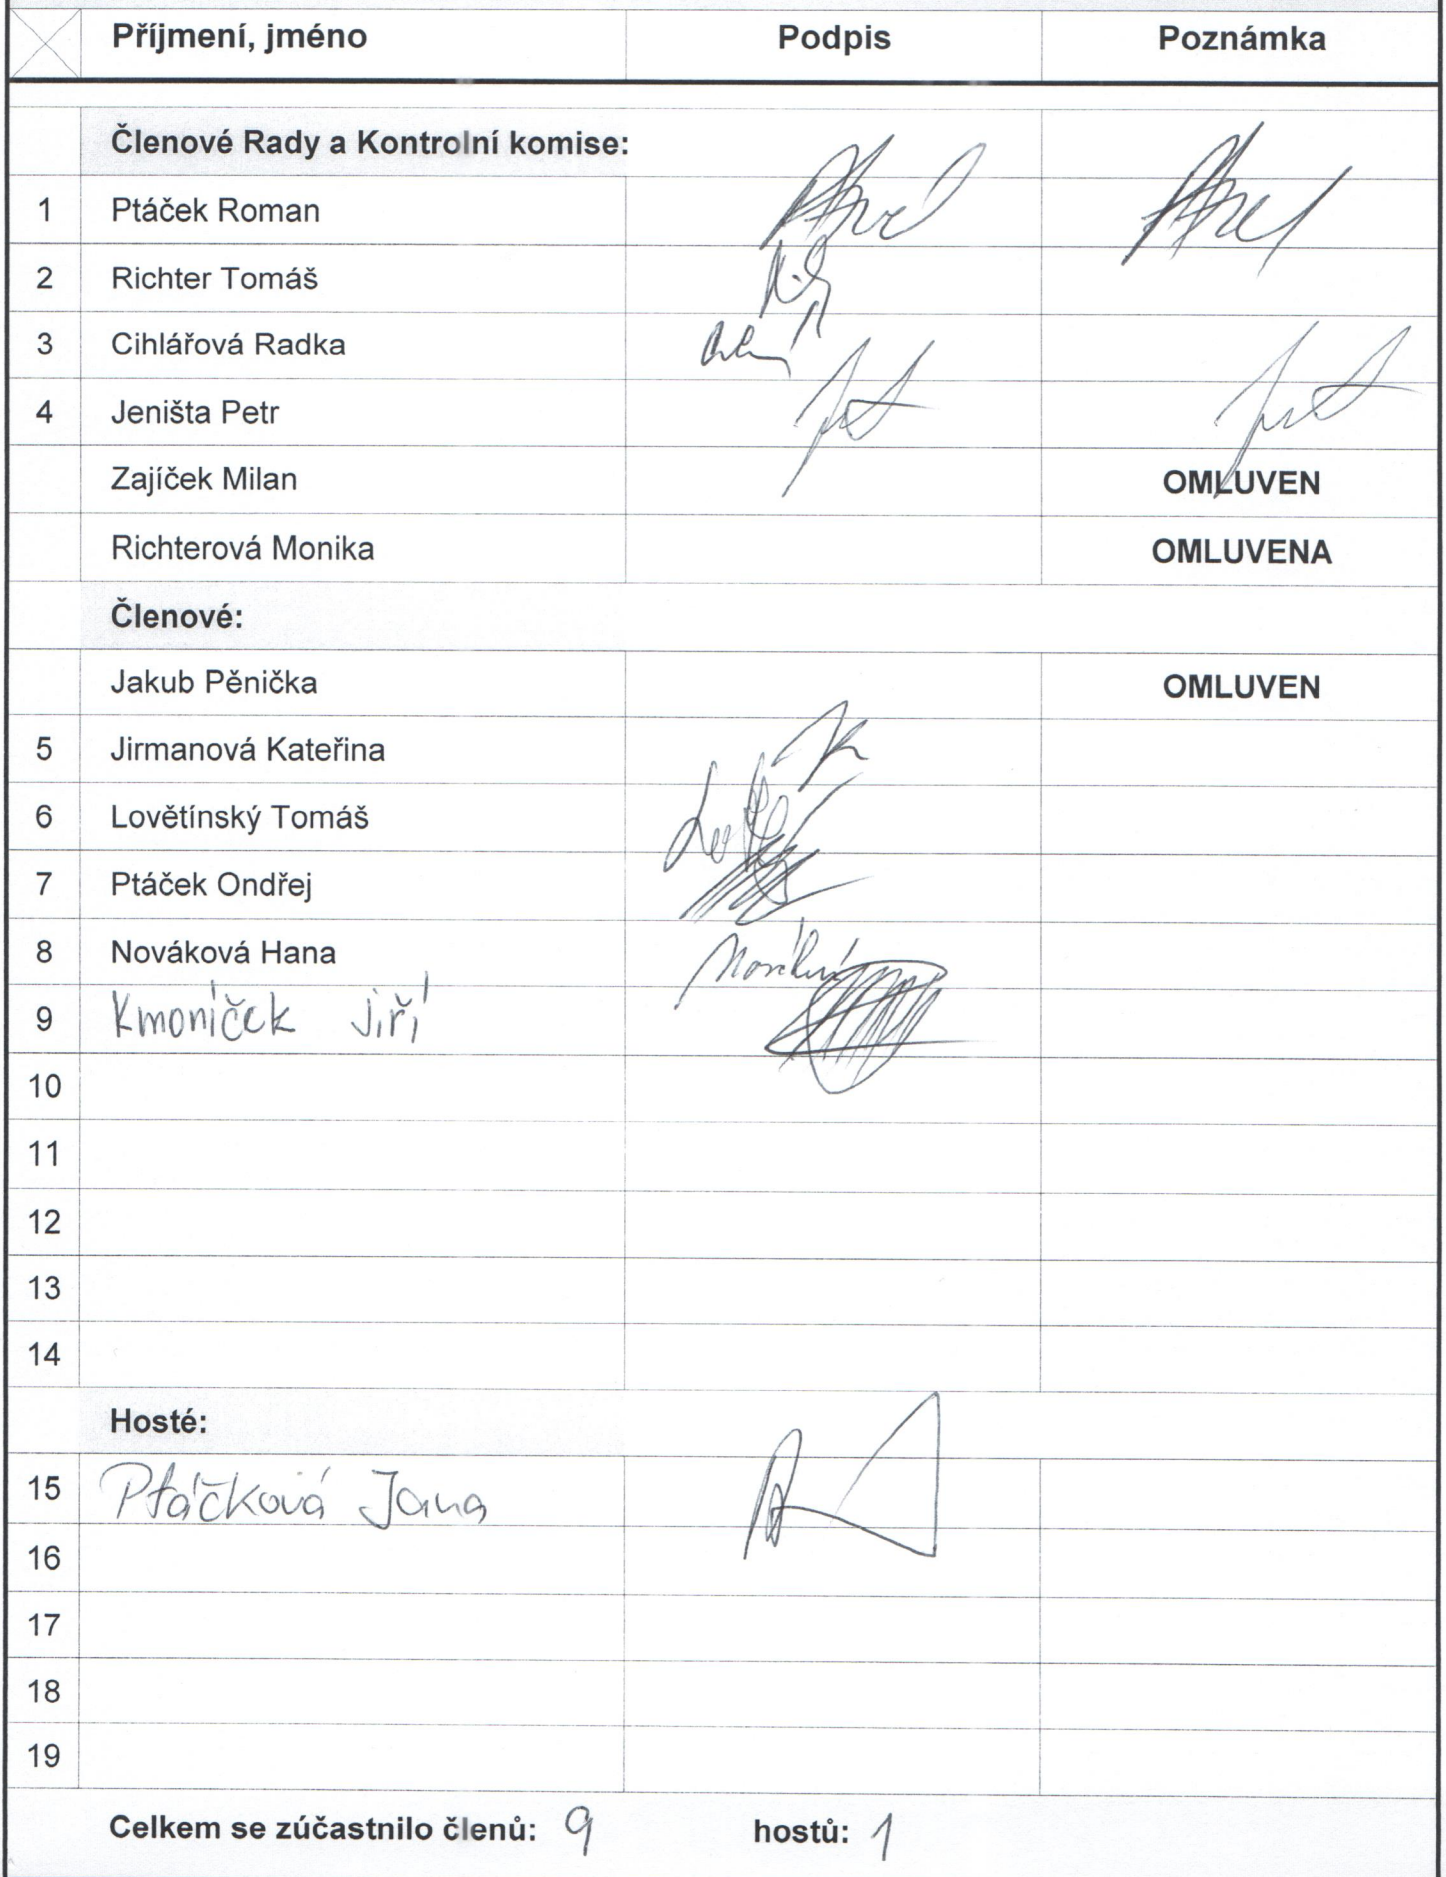 Příjmení, jméno Podpis Poznámka
Členové Rady a Kontrolní komise:
1 Ptáček Roman
2 Richter Tomáš
3 Cihlářová Radka
4 Jeništa Petr
Zajíček Milan OMLUVEN
Richterová Monika OMLUVENA
Členové:
Jakub Pěnička OMLUVEN
5 Jirmanová Kateřina
6 Lovětínský Tomáš
7 Ptáček Ondřej
8 Nováková Hana
9 Kmoníček Jiří
10
11
12
13
14
Hosté:
15 Ptáčková Jana
16
17
18
19
Celkem se zúčastnilo členů: 9 hostů: 1